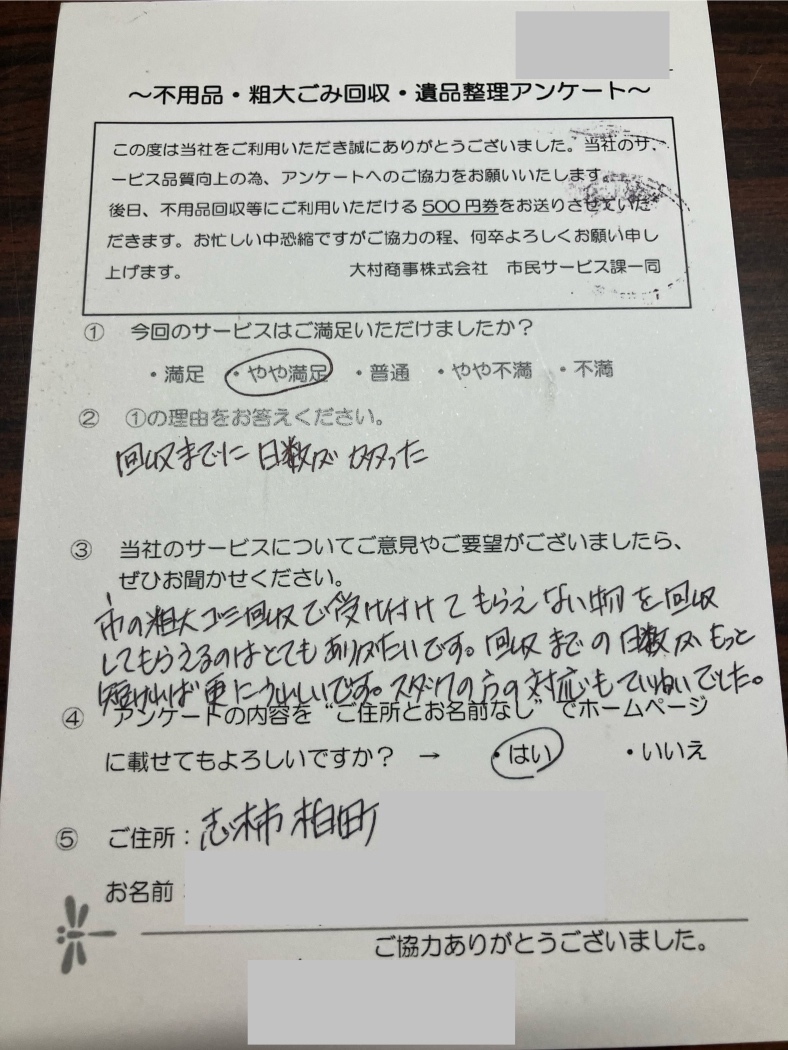 ～不用品・粗大ごみ回収・遺品整理アンケート～
この度は当社をご利用いただき誠にありがとうございました。当社のサ
ービス品質向上の為、アンケートへのご協力をお願いいたします。
後日、不用品回収等にご利用いただける500円券をお送りさせていた
だきます。お忙しい中恐縮ですがご協力の程、何卒よろしくお願い申し
上げます。 大村商事株式会社 市民サービス課一同
① 今回のサービスはご満足いただけましたか？
・満足 ・やや満足 ・普通 ・やや不満 ・不満
② ①の理由をお答えください。
回収までに日数がかかった
③ 当社のサービスについてご意見やご要望がございましたら、
ぜひお聞かせください。
市の粗大ゴミ回収で受け付けてもらえない物を回収
してもらえるのはとてもありがたいです。回収までの日数がもっと
短ければ更にうれしいです。スタッフの方の対応もていねいでした。
④ アンケートの内容を“ご住所とお名前なし”でホームページ
に載せてもよろしいですか？ → ・はい ・いいえ
⑤ ご住所：志木市柏町
お名前：
ご協力ありがとうございました。